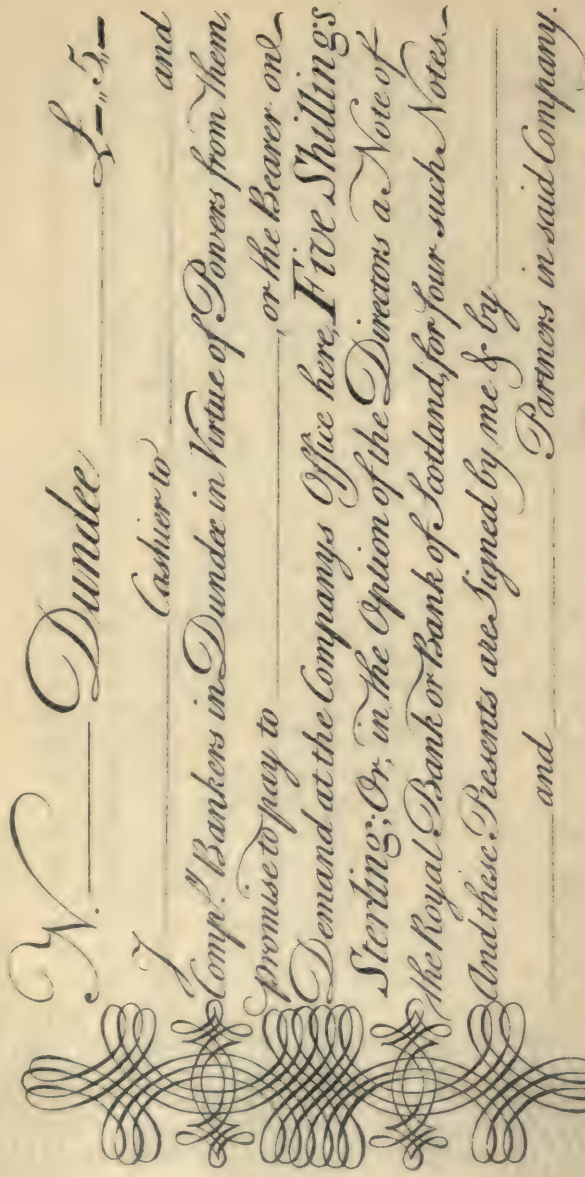 N. Dundee £-"5"-
I Cashier to and
Compy. Bankers in Dundee in Virtue of Powers from Them,
Promise to pay to or the Bearer on
Demand at the Companys Office here, Five Shillings
Sterling; Or, in the Option of the Directors a Note of
the Royal Bank or Bank of Scotland, for four such Notes.
And these Presents are Signed by me & by
and Partners in said Company.